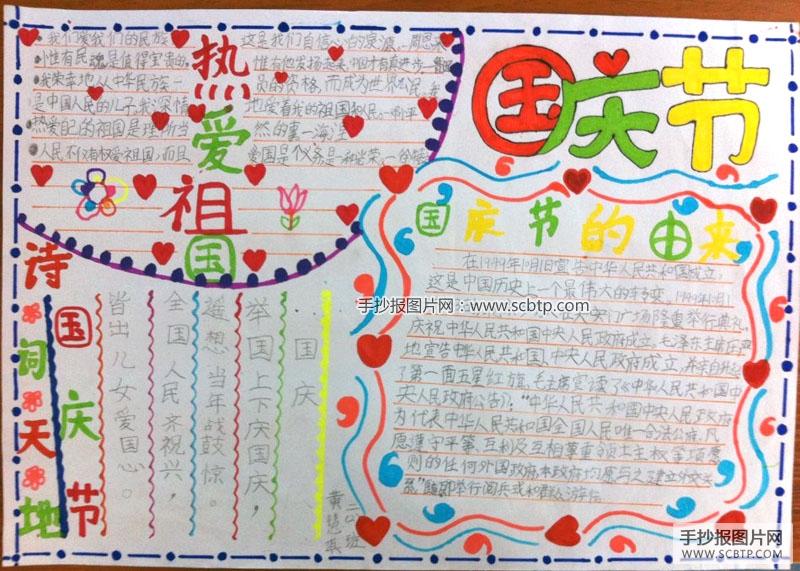 我们爱我们的民族 这是我们自信心的源泉。周恩来
惟有民魂是值得宝贵的 惟有他发扬起来中国才有真进步 鲁迅
我荣幸地从中华民族一 员的资格,而成为世界公民。我
是中国人民的儿子,我深情 地爱着我的祖国和人民。邓小平
热爱自己的祖国是理所当 然的事
人民不仅有权爱祖国,而且 爱国是个义务是一种光荣
热
爱
祖
国
国庆节
国庆节的由来
在1949年10月1日宣告中华人民共和国成立,
这是中国历史上一个最伟大的转变。1949年10月1
天安门广场隆重举行典礼,
庆祝中华人民共和国中央人民政府成立。毛泽东主席庄严
地宣告中华人民共和国,中央人民政府成立,并亲自升起
了第一面五星红旗。毛主席宣读了《中华人民共和国中
央人民政府公告》:"中华人民共和国中央人民政府
为代表中华人民共和国全国人民唯一合法政府。凡
愿遵守平等、互利及互相尊重领土主权等项原
则的任何外国政府,本政府均愿与之建立外交关
系"随即举行阅兵式和群众游行
诗词天地
国庆节
国庆
举国上下庆国庆,
遥想当年战鼓惊。
全国人民齐祝兴,
皆出儿女爱国心。
二(2)班
手抄报图片网:www.scbtp.com
手抄报图片网
WWW.SCBTP.COM